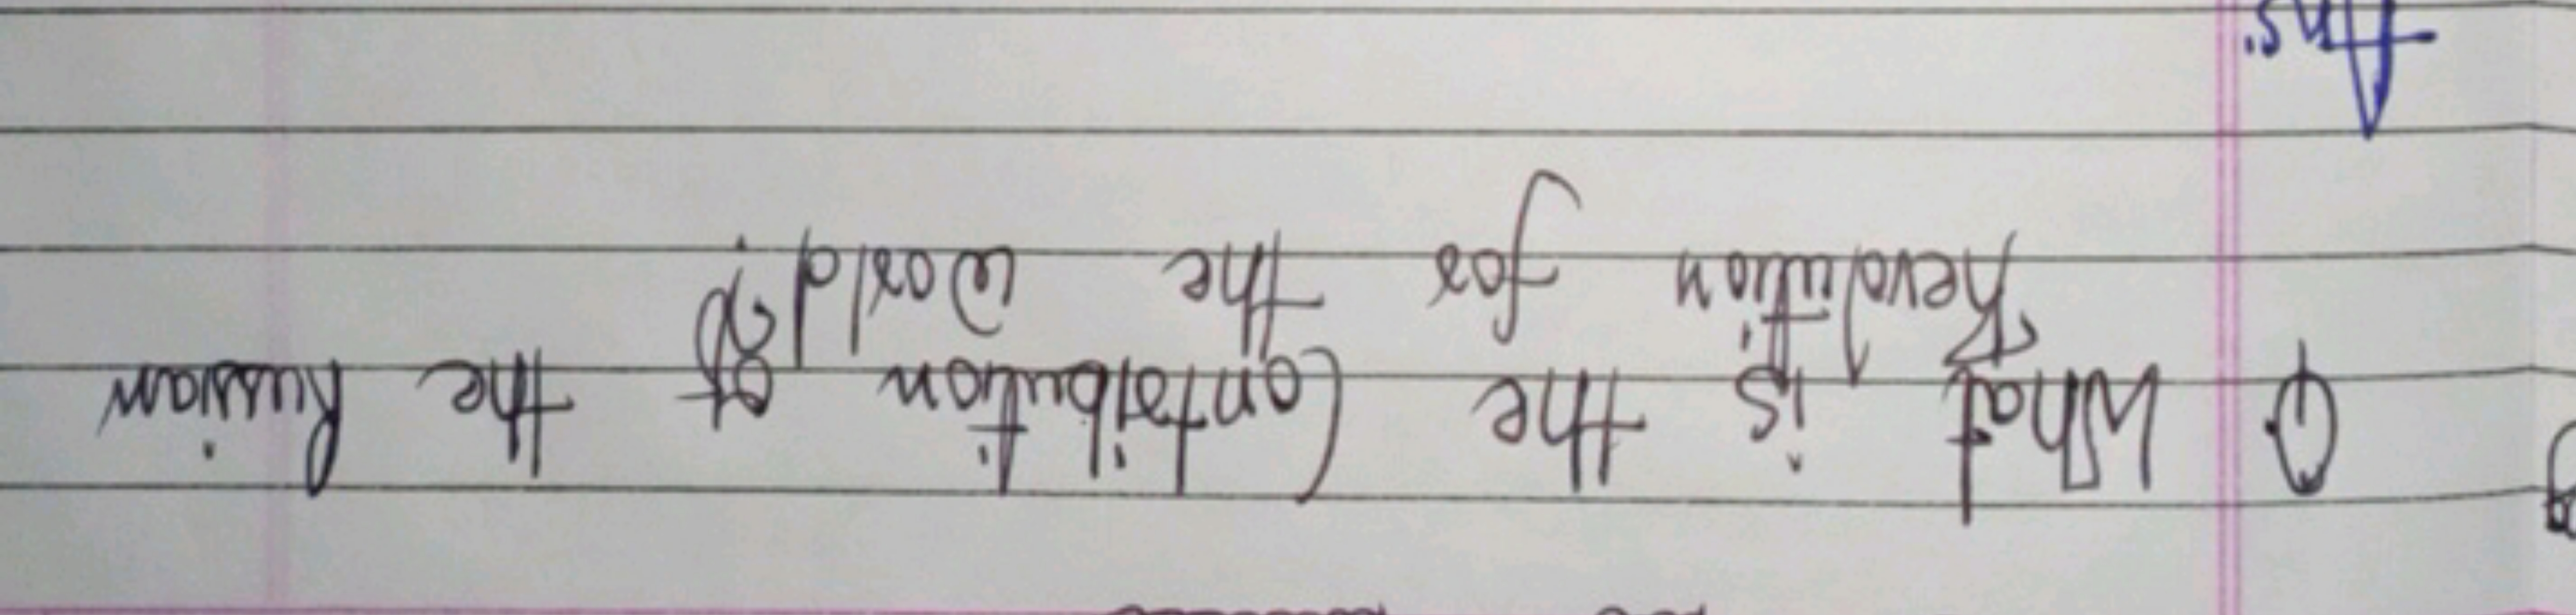 Q What is the Contribution of the Russian
Revolution for the World?
Ans.